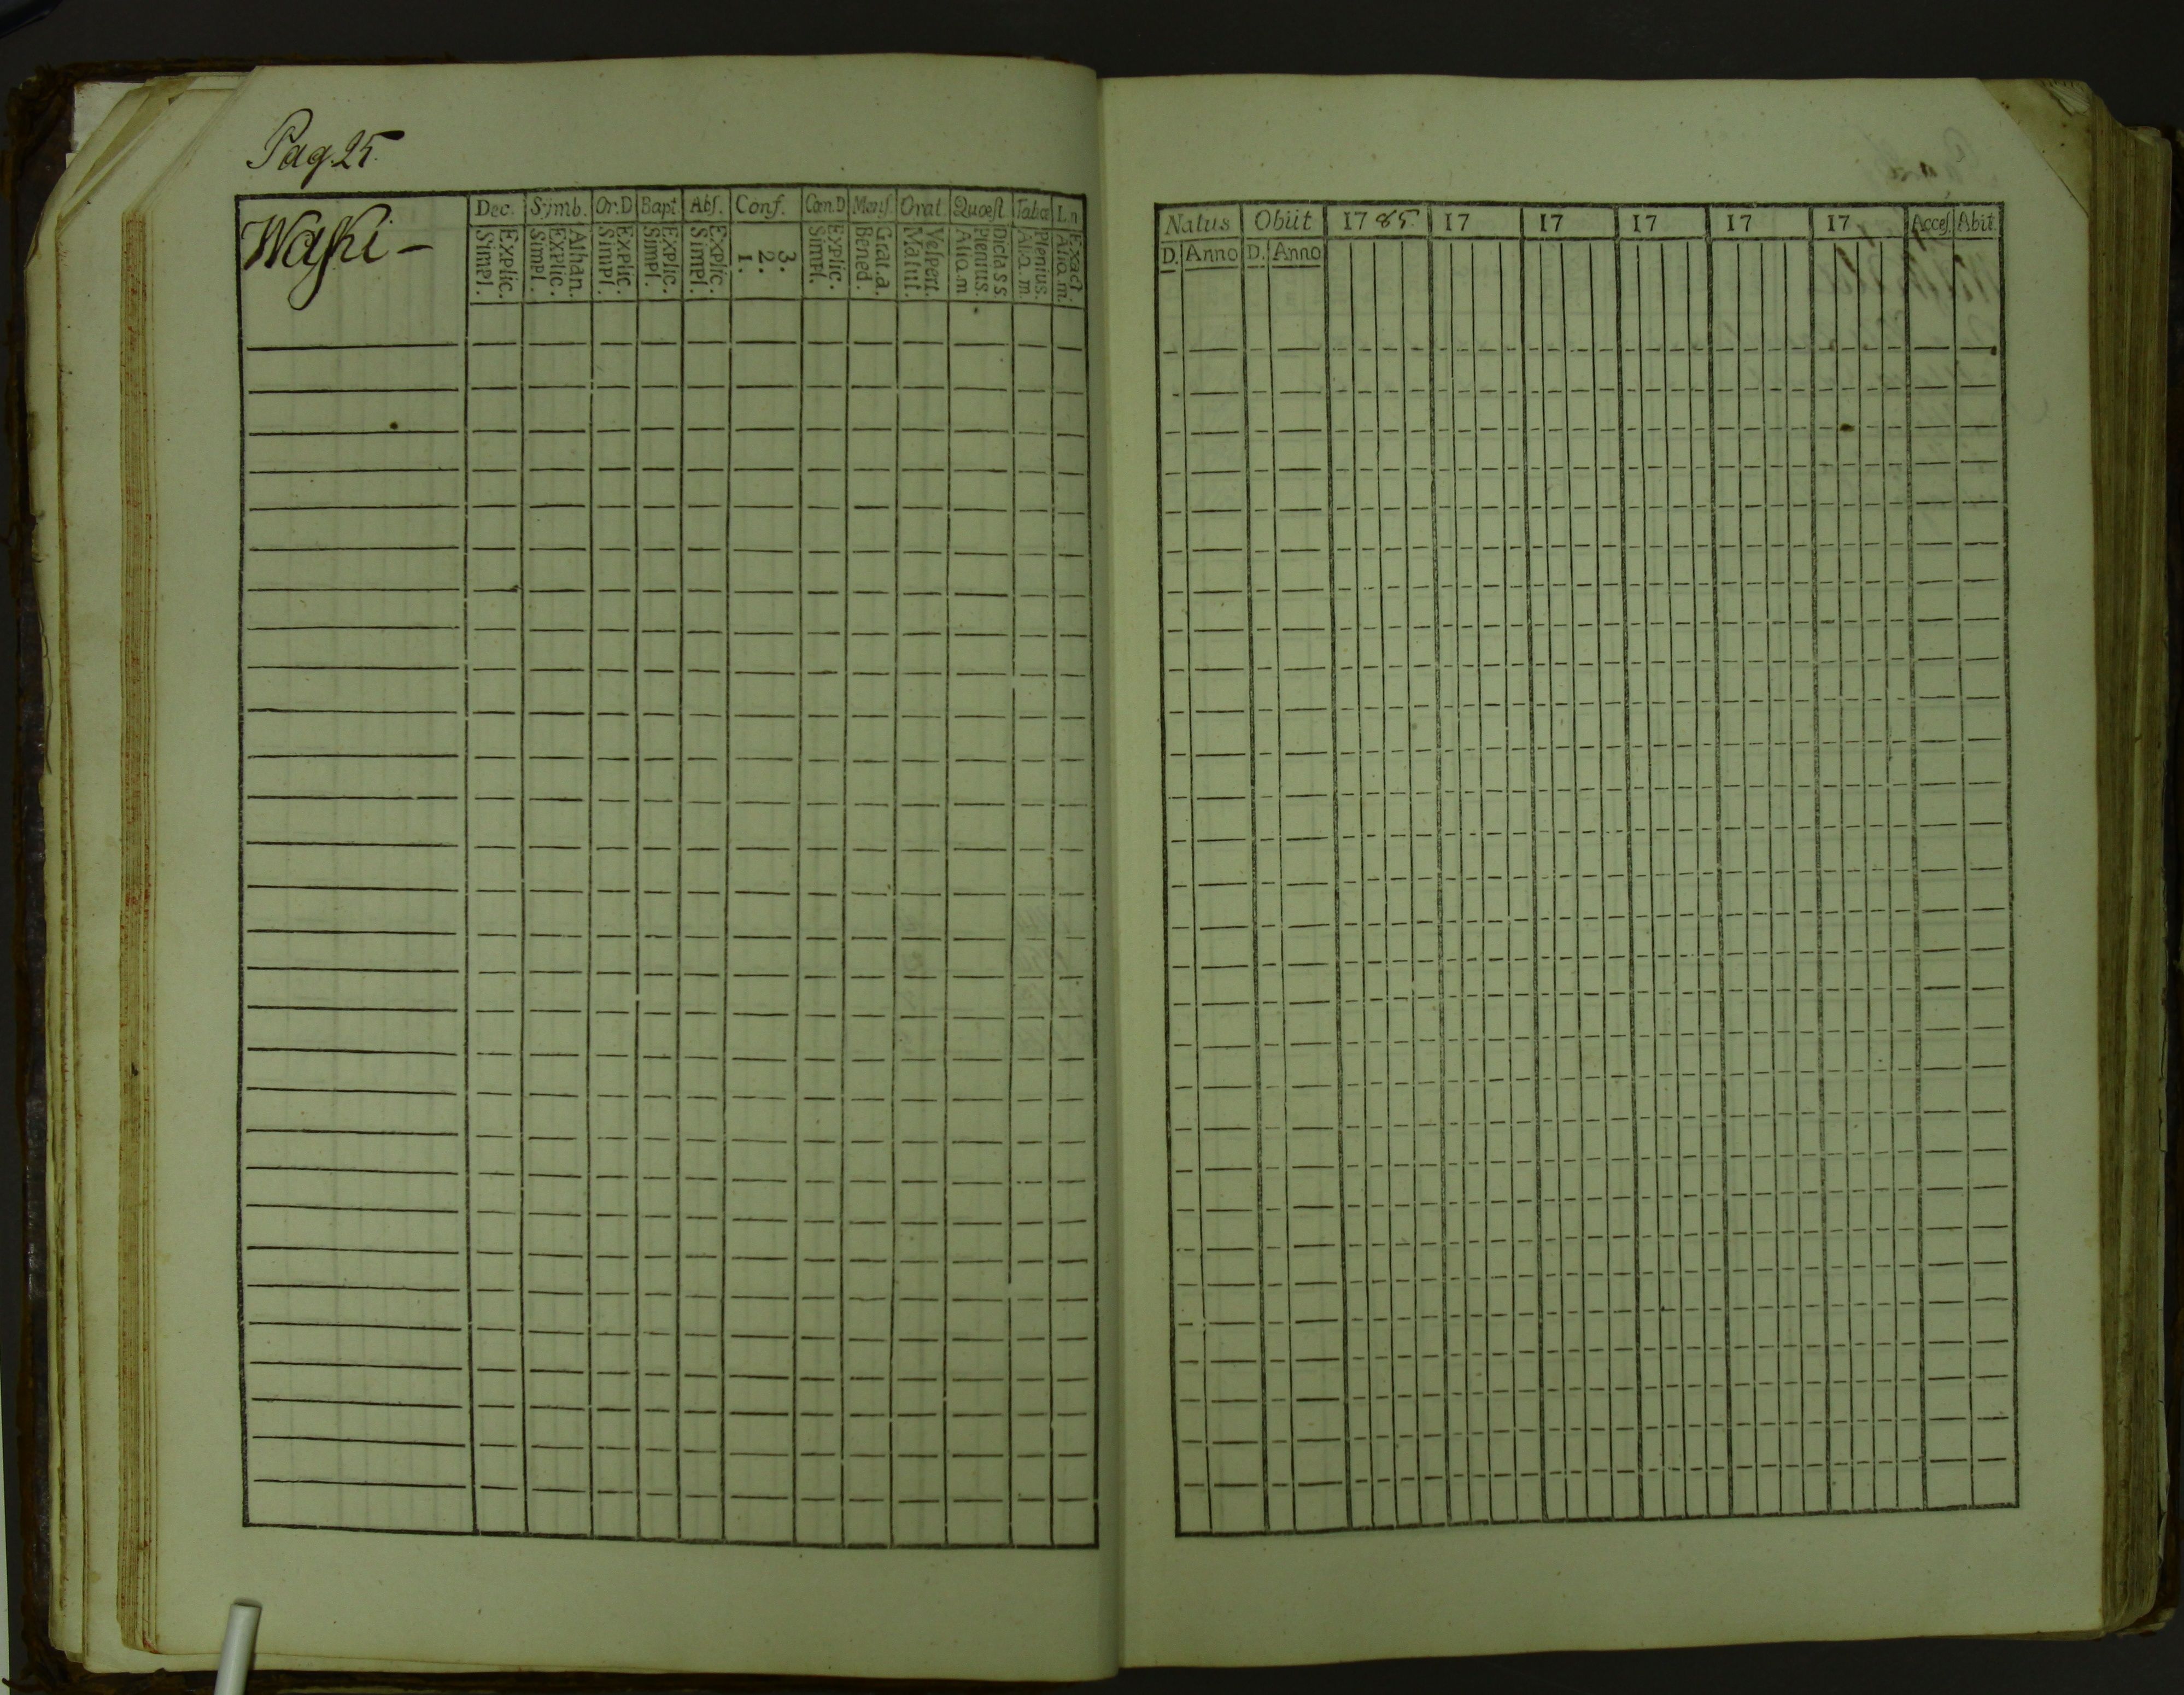 Pag. 25.
Waski –
Dec. Sÿmb. Or.D Bapt Abſ. Conf. Cœn.D Menſ. Orat. Quæſt. Tabæ Ln
Simpl. Explic. Simpl. Explic. Athan. Simpl. Explic. Simpl. Explic. Simpl. Explic. 1. 2. 3. Simpl. Explic. Bened. Grat.a. Matut. Veſpert. Aliq.m Plenius. Dicta S S. Aliq.m. Plenius. Aliq.m. Exact.
Natus Obiit 1785. 17 17 17 17 17 Acceſ. Abiit.
D. Anno D. Anno